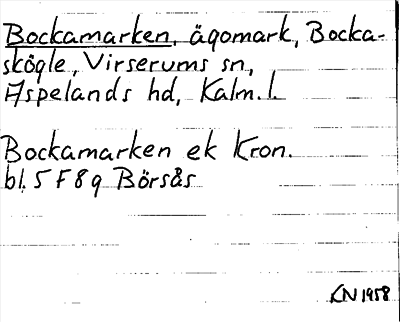 Bockamarken, ägomark, Bocka-
skögle, Virserums sn,
Aspelands hd, Kalm. l.
Bockamarken ek Kron.
bl. 5 F 8 g Börsås
KN 1958